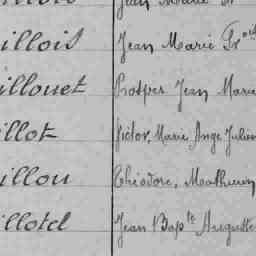 illois Jean Marie Fr^ois
illouet Prosper Jean Marie
illot Victor, Marie Ange Julien
illou Théodore, Mathurin
illotel Jean Bap^te Auguste